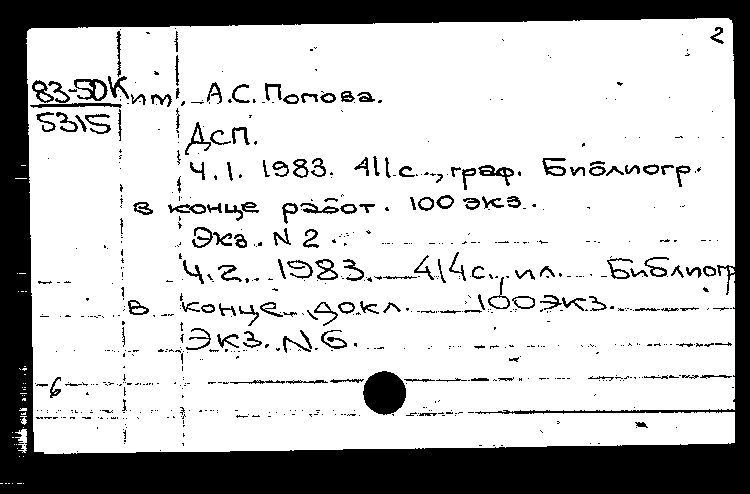 2
83-50Ким. А.С. Попова.
5315
ДСП.
Ч.1. 1983. 411 с., граф. Библиогр.
в конце работ. 100 экз.
Экз. N 2.
Ч.2. 1983. 414 с., ил. Библиогр
в конце докл. 100 экз.
Экз. N 6.
6